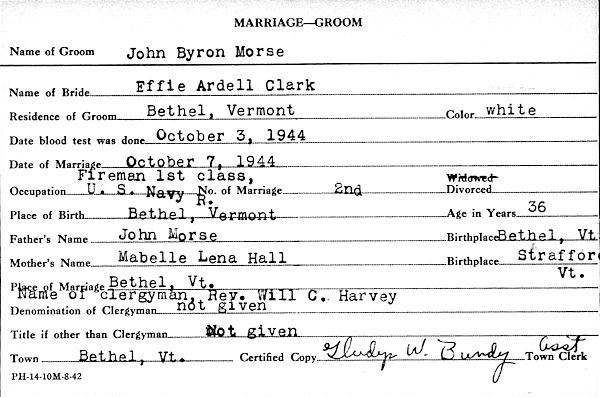 MARRIAGE—GROOM
Name of Groom John Byron Morse
Name of Bride Effie Ardell Clark
Residence of Groom Bethel, Vermont Color white
Date blood test was done October 3, 1944
Date of Marriage October 7, 1944
Fireman 1st class, Widowed
Occupation U. S. Navy R. No. of Marriage 2nd Divorced
Place of Birth Bethel, Vermont Age in Years 36
Father's Name John Morse Birthplace Bethel, Vt
Mother's Name Mabelle Lena Hall Birthplace Strafford
Vt.
Place of Marriage Bethel, Vt.
Name of clergyman, Rev. Will C. Harvey
Denomination of Clergyman not given
Title if other than Clergyman Not given
Town Bethel, Vt. Certified Copy Gladys W. Bundy Asst Town Clerk
PH-14-10M-8-42